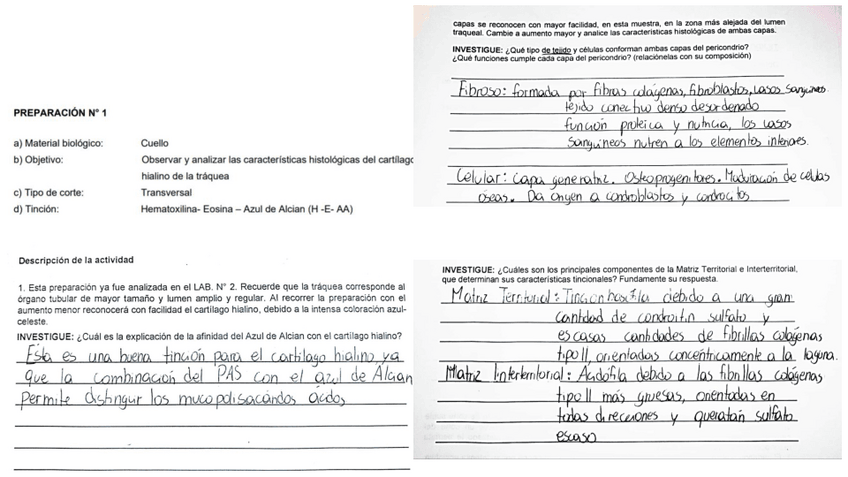 PREPARACIÓN N° 1
a) Material biológico: Cuello
b) Objetivo: Observar y analizar las características histológicas del cartílago
hialino de la tráquea
c) Tipo de corte: Transversal
d) Tinción: Hematoxilina- Eosina – Azul de Alcian (H -E- AA)
Descripción de la actividad
1. Esta preparación ya fue analizada en el LAB. N° 2. Recuerde que la tráquea corresponde al
órgano tubular de mayor tamaño y lumen amplio y regular. Al recorrer la preparación con el
aumento menor reconocerá con facilidad el cartílago hialino, debido a la intensa coloración azul-
celeste.
INVESTIGUE: ¿Cuál es la explicación de la afinidad del Azul de Alcian con el cartílago hialino?
Esta es una buena tinción para el cartílago hialino, ya
que la combinación del PAS con el azul de Alcian
permite distinguir los mucopolisacáridos ácidos
capas se reconocen con mayor facilidad, en esta muestra, en la zona más alejada del lumen
traqueal. Cambie a aumento mayor y analice las características histológicas de ambas capas.
INVESTIGUE: ¿Qué tipo de tejido y células conforman ambas capas del pericondrio?
¿Qué funciones cumple cada capa del pericondrio? (relaciónelas con su composición)
Fibroso: formada por fibras colágenas, fibroblastos, vasos sanguíneos
tejido conectivo denso desordenado
función proteica y nutricia, los vasos
sanguíneos nutren a los elementos interiores.
Celular: capa generatriz. Osteoprogenitores. Maduración de células
óseas. Da origen a condroblastos y condrocitos
INVESTIGUE: ¿Cuáles son los principales componentes de la Matriz Territorial e Interterritorial,
que determinan sus características tincionales? Fundamente su respuesta.
Matriz Territorial: Tinción basófila debido a una gran
cantidad de condroitín sulfato y
escasas cantidades de fibrillas colágenas
tipo II, orientadas concéntricamente a la laguna.
Matriz Interterritorial: Acidófila debido a las fibrillas colágenas
tipo II más gruesas, orientadas en
todas direcciones y queratán sulfato
escaso